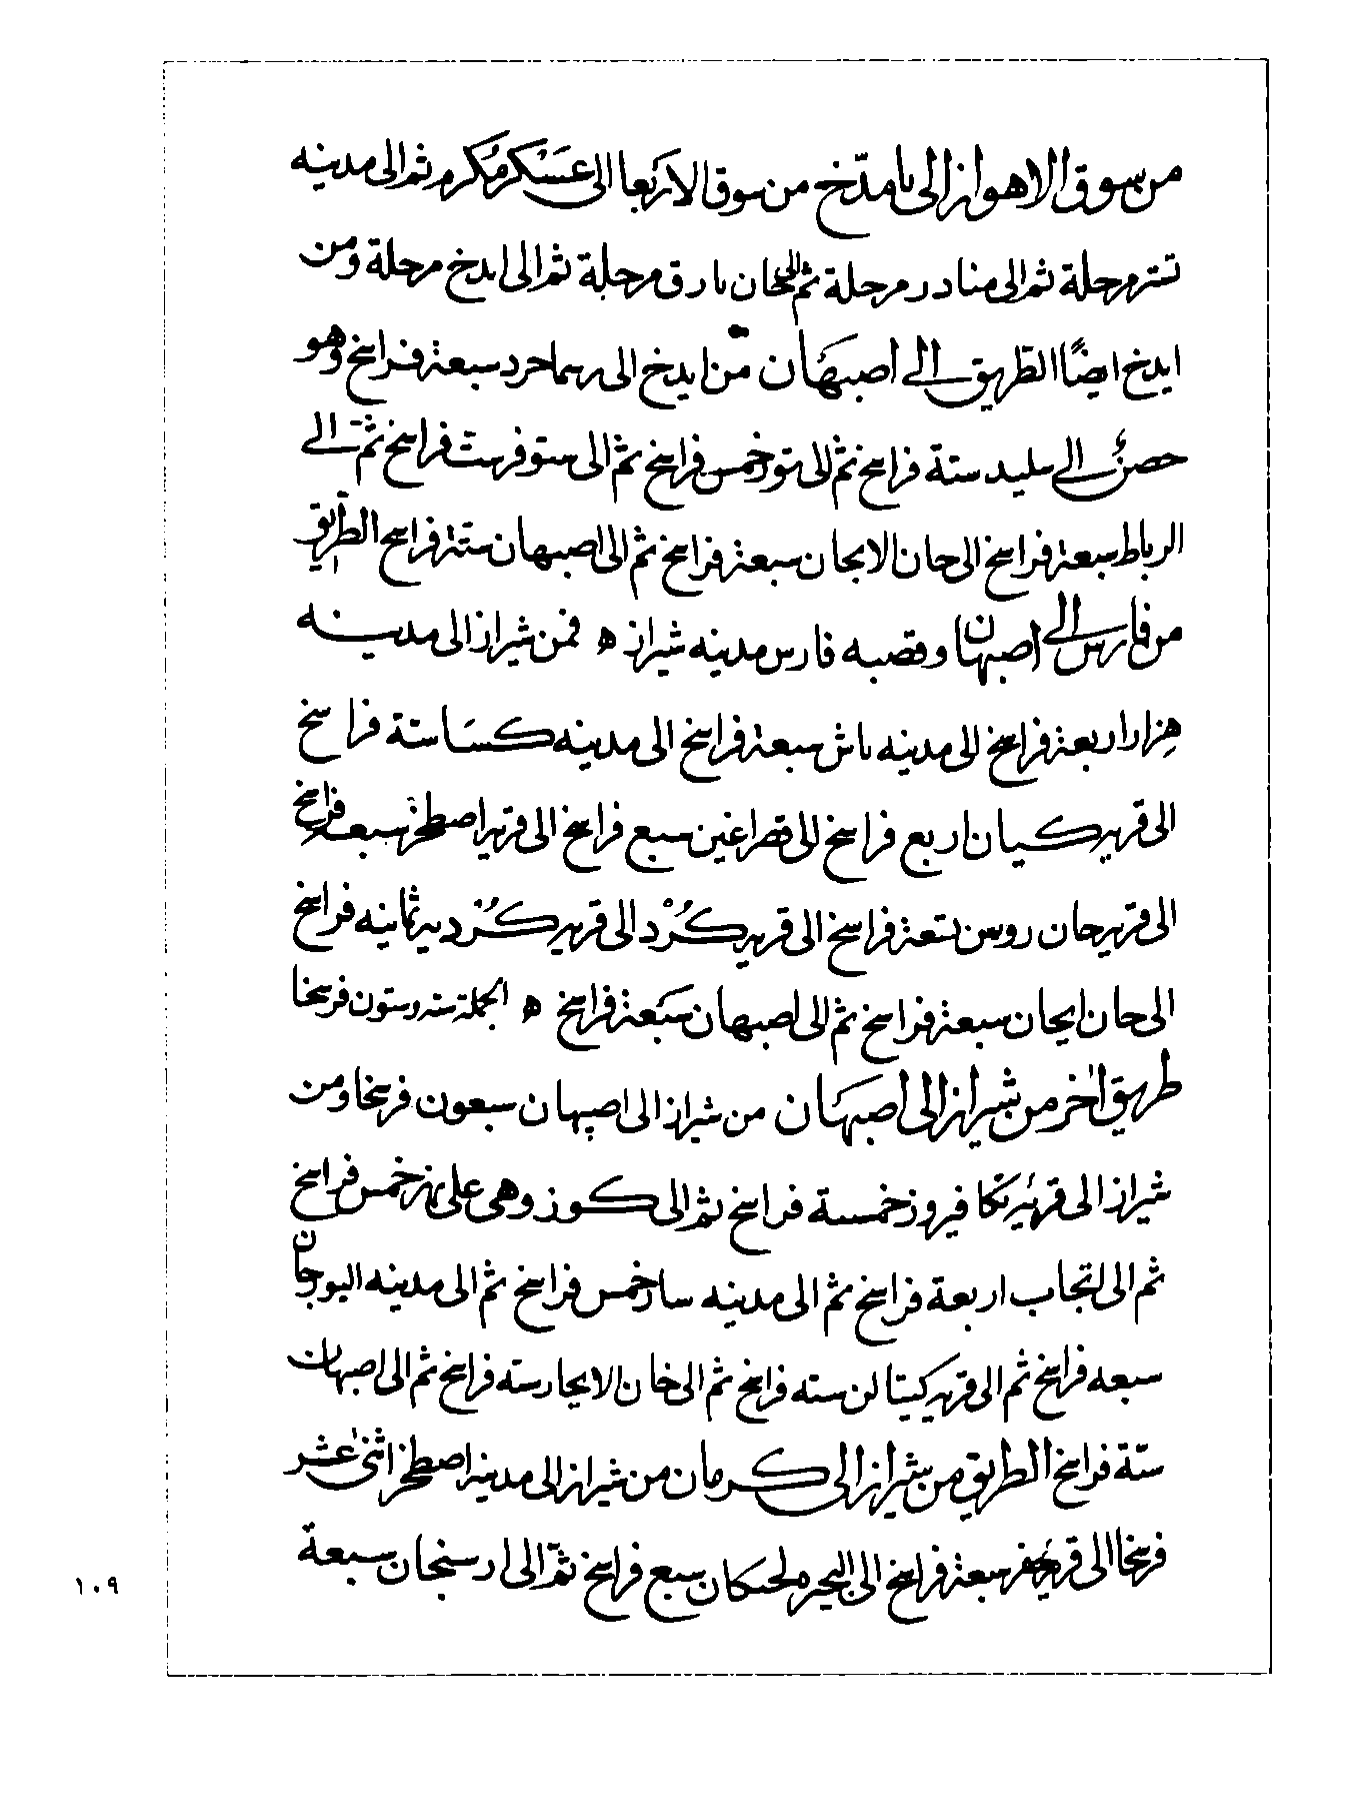 من سوق الاهواز الى بامدخ من سوق الاربعا الى عَسْكر مُكرم ثم الى مدينه
تستر مرحلة ثم الى منادر مرحلة ثم الى خان بارق مرحلة ثم الى ايدخ مرحلة ومن
ايدخ ايضًا الطّريق الى اصبهان من ايدخ الى رسماحرد سبعة فراسخ وهو
حصن الى سليد ستة فراسخ ثم الى تود خمس فراسخ ثم الى ستو فرست فراسخ ثم الى
الرباط سبعة فراسخ الى حان الابجان سبعة فراسخ ثم الى اصبهان ستة فراسخ الطّريق
من فارس الى اصبهان وقصبه فارس مدينه شيراز ه فمن شيراز الى مدينه
هزار اربعة فراسخ الى مدينه باش سبعة فراسخ الى مدينه كسا ستة فراسخ
الى قريه كيان اربع فراسخ الى قصر اعين سبع فراسخ الى قريه اصطخر سبعة فراسخ
الى قريه حان روس تسعة فراسخ الى قريه كُرْد الى قريه كُزد بير ثمانيه فراسخ
الى حان ايجان سبعة فراسخ ثم الى اصبهان سبعة فراسخ ه الجملة سته وستون فرسخا
طريق اخر من شيراز الى اصبهان من شيراز الى اصبهان سبعون فرسخا ومن
شيراز الى قريه تكا فيروز خمسة فراسخ ثم الى كوز وهى على نهر خمس فراسخ
ثم الى لتجاب اربعة فراسخ ثم الى مدينه سار خمس فراسخ ثم الى مدينه اليوجان
سبعه فراسخ ثم الى قريه كيتا لن سته فراسخ ثم الى خان الابجار سته فراسخ ثم الى اصبهان
ستة فراسخ الطريق من شيراز الى كرمان من شيراز الى مدينه اصطخر اثنى عشر
فرسخا الى قريه سبعة فراسخ الى البحيره سبع فراسخ ثمّ الى ارسنجان سبعة
١٠٩